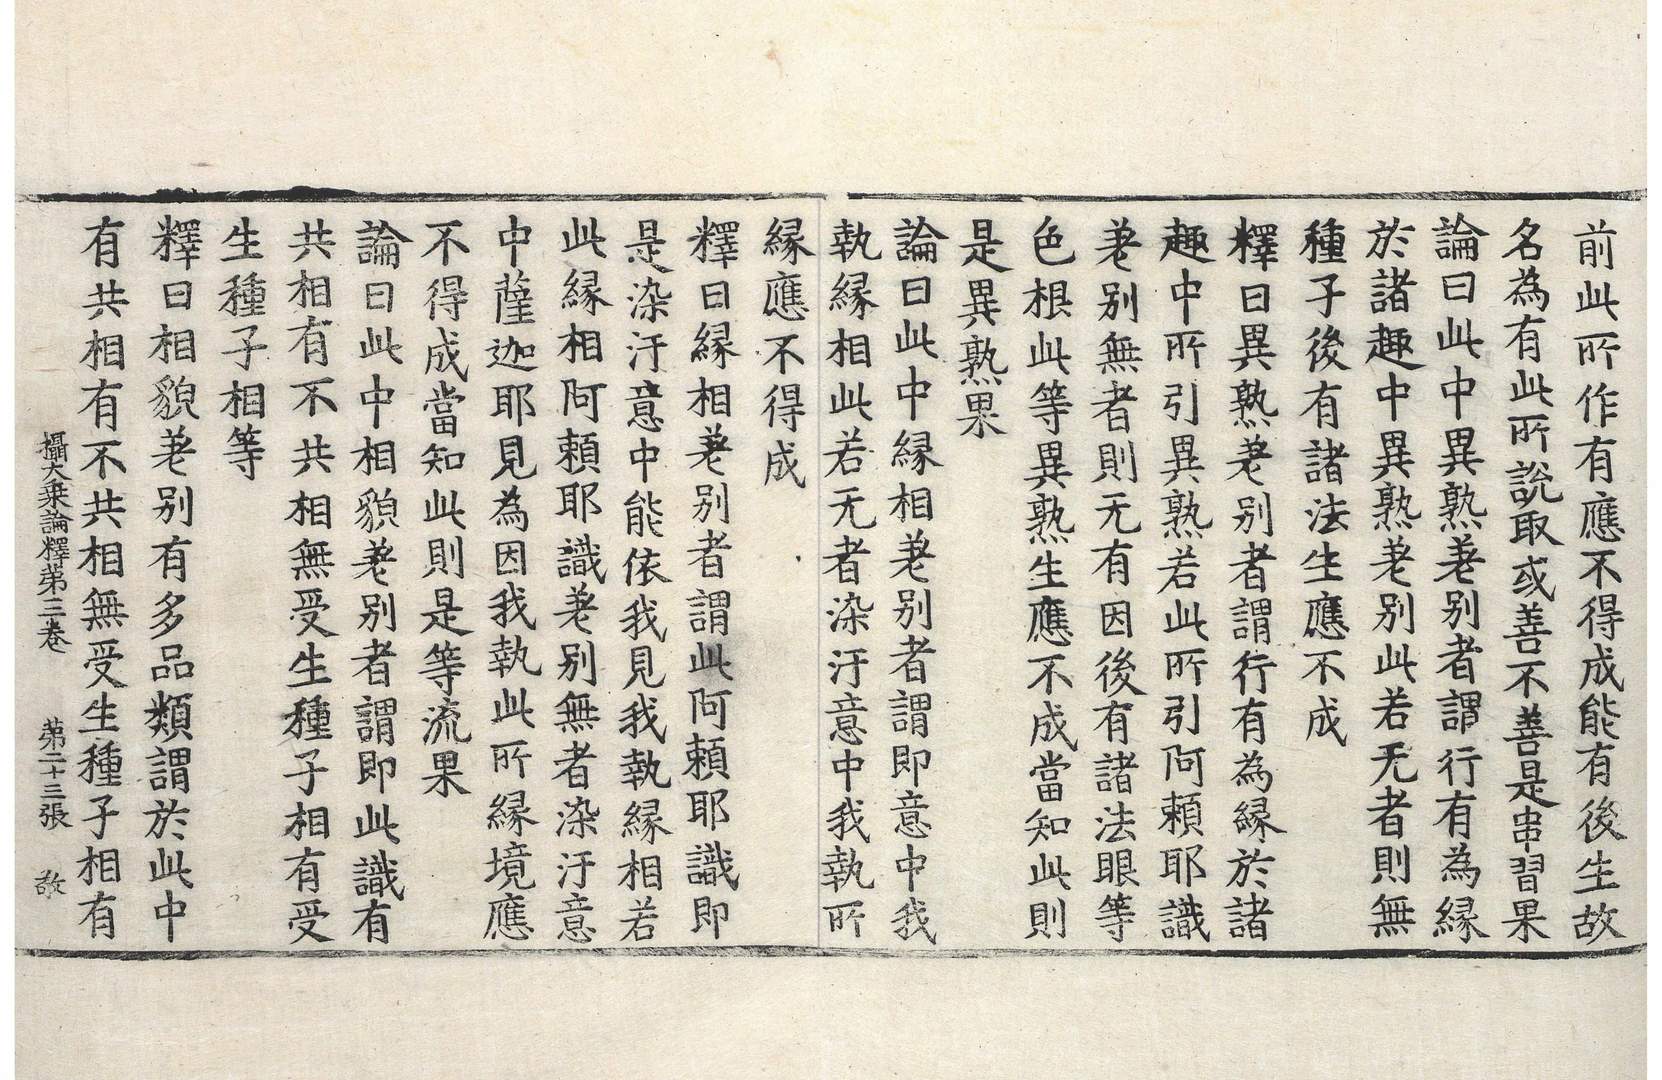 前此所作有應不得成能有後生故
名為有此所說取或善不善是串習果
論曰此中異熟差別者謂行有為緣
於諸趣中異熟差別此若无者則無
種子後有諸法生應不成
釋曰異熟差別者謂行有為緣於諸
趣中所引異熟若此所引阿賴耶識
差別無者則无有因後有諸法眼等
色根此等異熟生應不成當知此則
是異熟果
論曰此中緣相差別者謂即意中我
執緣相此若无者染汙意中我執所
緣應不得成
釋曰緣相差別者謂此阿賴耶識即
是染汙意中能依我見我執緣相若
此緣相阿賴耶識差別無者染汙意
中薩迦耶見為因我執此所緣境應
不得成當知此則是等流果
論曰此中相貌差別者謂即此識有
共相有不共相無受生種子相有受
生種子相等
釋曰相貌差別有多品類謂於此中
有共相有不共相無受生種子相有
攝大乘論釋第三卷 第二十三張 敬